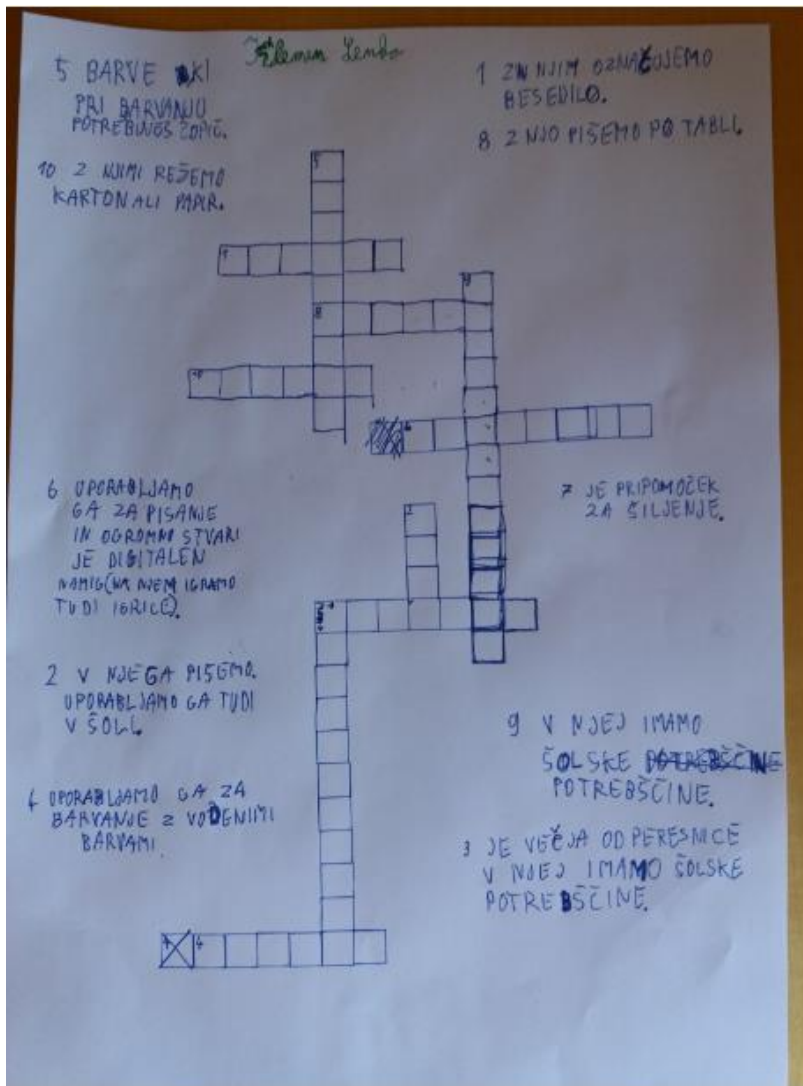 Klemen Lenko
5 BARVE KI
PRI BARVANJU
POTREBUJEŠ ČOPIČ.
10 Z NJIMI REŽEMO
KARTON ALI PAPIR.
1 Z NJIM OZNAČUJEMO
BESEDILO.
8 Z NJO PIŠEMO PO TABLI.
5
1
9
8
10
6
2
7
4
6 UPORABLJAMO
GA ZA PISANJE
IN OGROMNO STVARI
JE DIGITALEN
NAMIG(NA NJEM IGRAMO
TUDI IGRICE).
7 JE PRIPOMOČEK
ZA ŠILJENJE.
2 V NJEGA PIŠEMO.
UPORABLJAMO GA TUDI
V ŠOLI.
4 UPORABLJAMO GA ZA
BARVANJE Z VODENIMI
BARVAMI.
9 V NJEJ IMAMO
ŠOLSKE
POTREBŠČINE.
3 JE VEČJA OD PERESNICE
V NJEJ IMAMO ŠOLSKE
POTREBŠČINE.